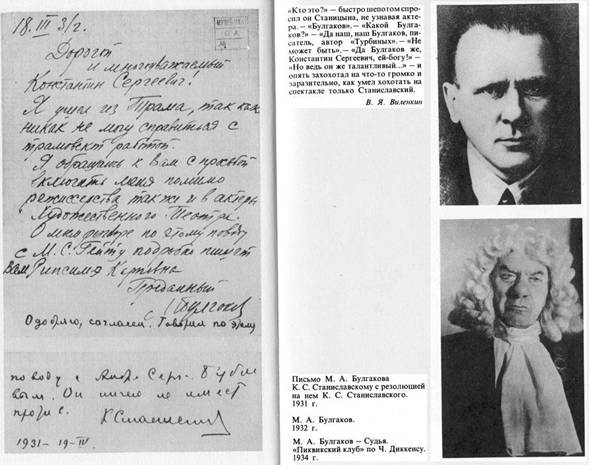 18. III 31 г.
Дорогой
и многоуважаемый
Константин Сергеевич!
Я ушел из Трама, так как
никак не могу справиться с
трамовской работой.
Я обращаюсь к Вам с просьбой
включить меня помимо
режиссерства также и в актеры
Художественного Театра.
О моем по этому поводу
с М. С. Гейтц подробно пишет
Вам Рипсимэ Карповна
Преданный
Булгаков
Одобряю, согласен. Говорил по этому
поводу с Андр. Серг. Бубно
вым. Он ничего не имеет
против.
К Станиславский
1931-19-IV
«Кто это?» — быстро шепотом спро-
сил он Станицына, не узнавая акте-
ра. — «Булгаков». — «Какой Булга-
ков?» — «Да наш, наш Булгаков, пи-
сатель, автор "Турбиных". — «Не
может быть». — «Да Булгаков же,
Константин Сергеевич, ей-богу!» —
«Но ведь он же талантливый...» — и
опять захохотал на что-то громко и
заразительно, как умел хохотать на
спектакле только Станиславский.
В. Я. Виленкин
Письмо М. А. Булгакова
К. С. Станиславскому с резолюцией
на нем К. С. Станиславского.
1931 г.
М. А. Булгаков.
1932 г.
М. А. Булгаков — Судья.
«Пиквикский клуб» по Ч. Диккенсу.
1934 г.